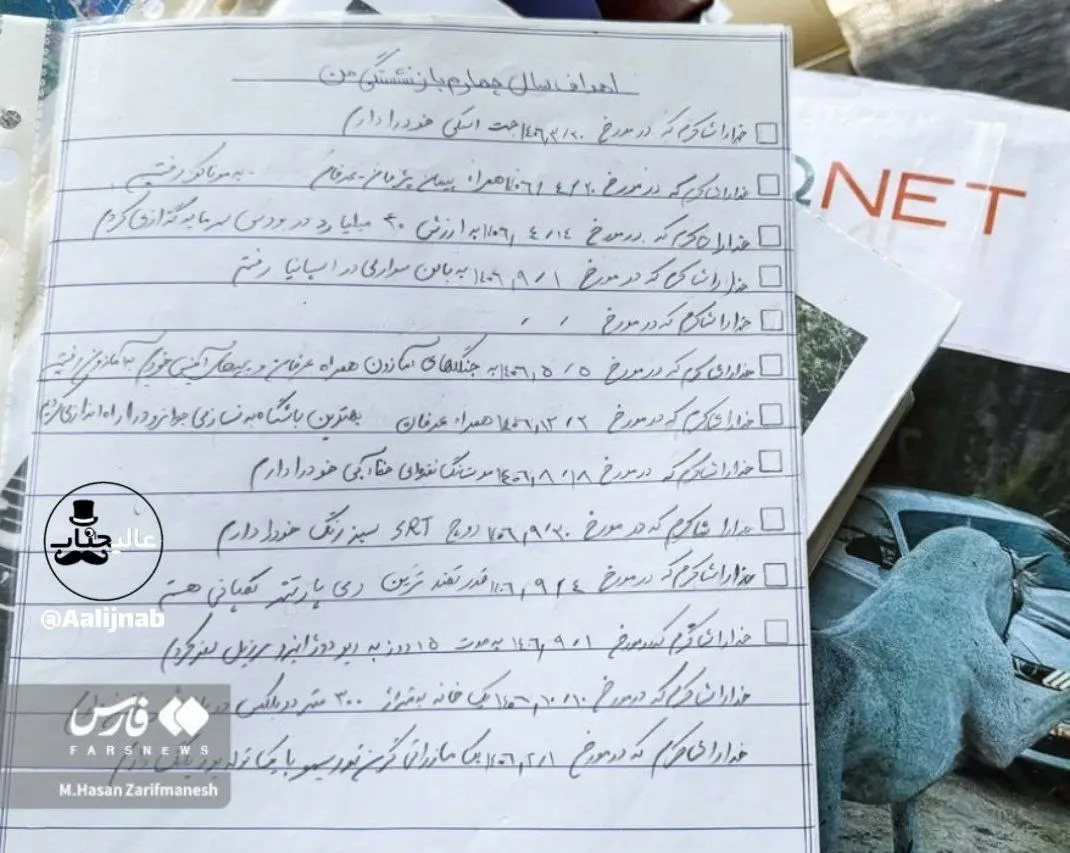 اهداف سال چهارم بازنشستگی من
خدا را شاکرم که در مورخ ۱۴۰۶/۳/۲۰ جت اسکی خود را دارم
خدا را شاکرم که در مورخ ۱۴۰۶/۴/۲۰ همراه پیمان پژمان - عرفان - به موناکو رفتیم
خدا را شاکرم که در مورخ ۱۴۰۶/۴/۱۴ به ارزش ۳۰ میلیارد در بورس سرمایه گذاری کردم
خدا را شاکرم که در مورخ ۱۴۰۶/۹/۱ به بالن سواری در اسپانیا رفتم
خدا را شاکرم که در مورخ / /
خدا را شاکرم که در مورخ ۱۴۰۶/۵/۵ به جنگلهای آمازون همراه عرفان و بچه های آفیس خودم به آمازون رفتیم
خدا را شاکرم که در مورخ ۱۴۰۶/۱۲/۲ همراه عرفان بهترین باشگاه بدنسازی جوانرود را راه اندازی کردیم
خدا را شاکرم که در مورخ ۱۴۰۶/۸/۱۸ موستانگ نقره ای خط آبی خود را دارم
خدا را شاکرم که در مورخ ۱۴۰۶/۹/۳۰ دوج SRT سبز رنگ خود را دارم
خدا را شاکرم که در مورخ ۱۴۰۶/۹/۴ قدرتمند ترین وی پارتنر کمپانی هستم
خدا را شاکرم که در مورخ ۱۴۰۶/۹/۱ به مدت ۱۵ روز به ریودوژانیرو برزیل سفر کردم
خدا را شاکرم که در مورخ ۱۴۰۶/۱۰/۱۰ یک خانه به متراژ ۳۰۰ متر دوبلکس در
خدا را شاکرم که در مورخ ۱۴۰۶/۲/۱ یک مازراتی گرن توریسمو با
QNET
عالیجناب
@Aalijnab
فارس
FARSNEWS
M.Hasan Zarifmanesh